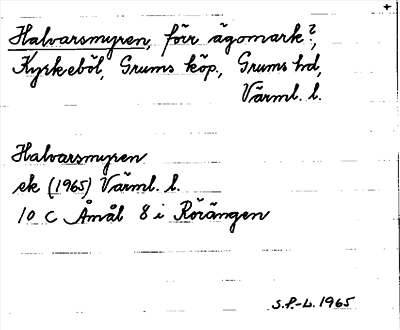 Halvarsmyren, förr ägomark?,
Kyrkeböl, Grums köp., Grums hd,
Värml. l.
Halvarsmyren
ek (1965) Värml. l.
10 C Åmål 8 i Rörängen
S.P.-L. 1965